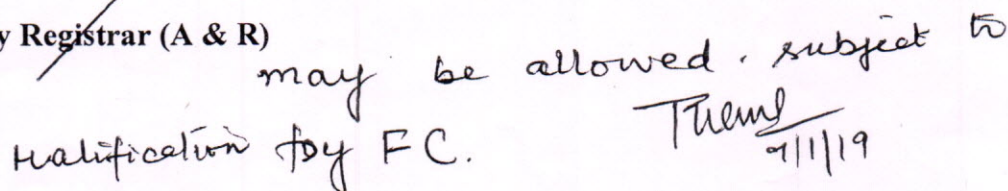 y Registrar (A & R)
may be allowed. subject to
ratification by FC.
9/1/19